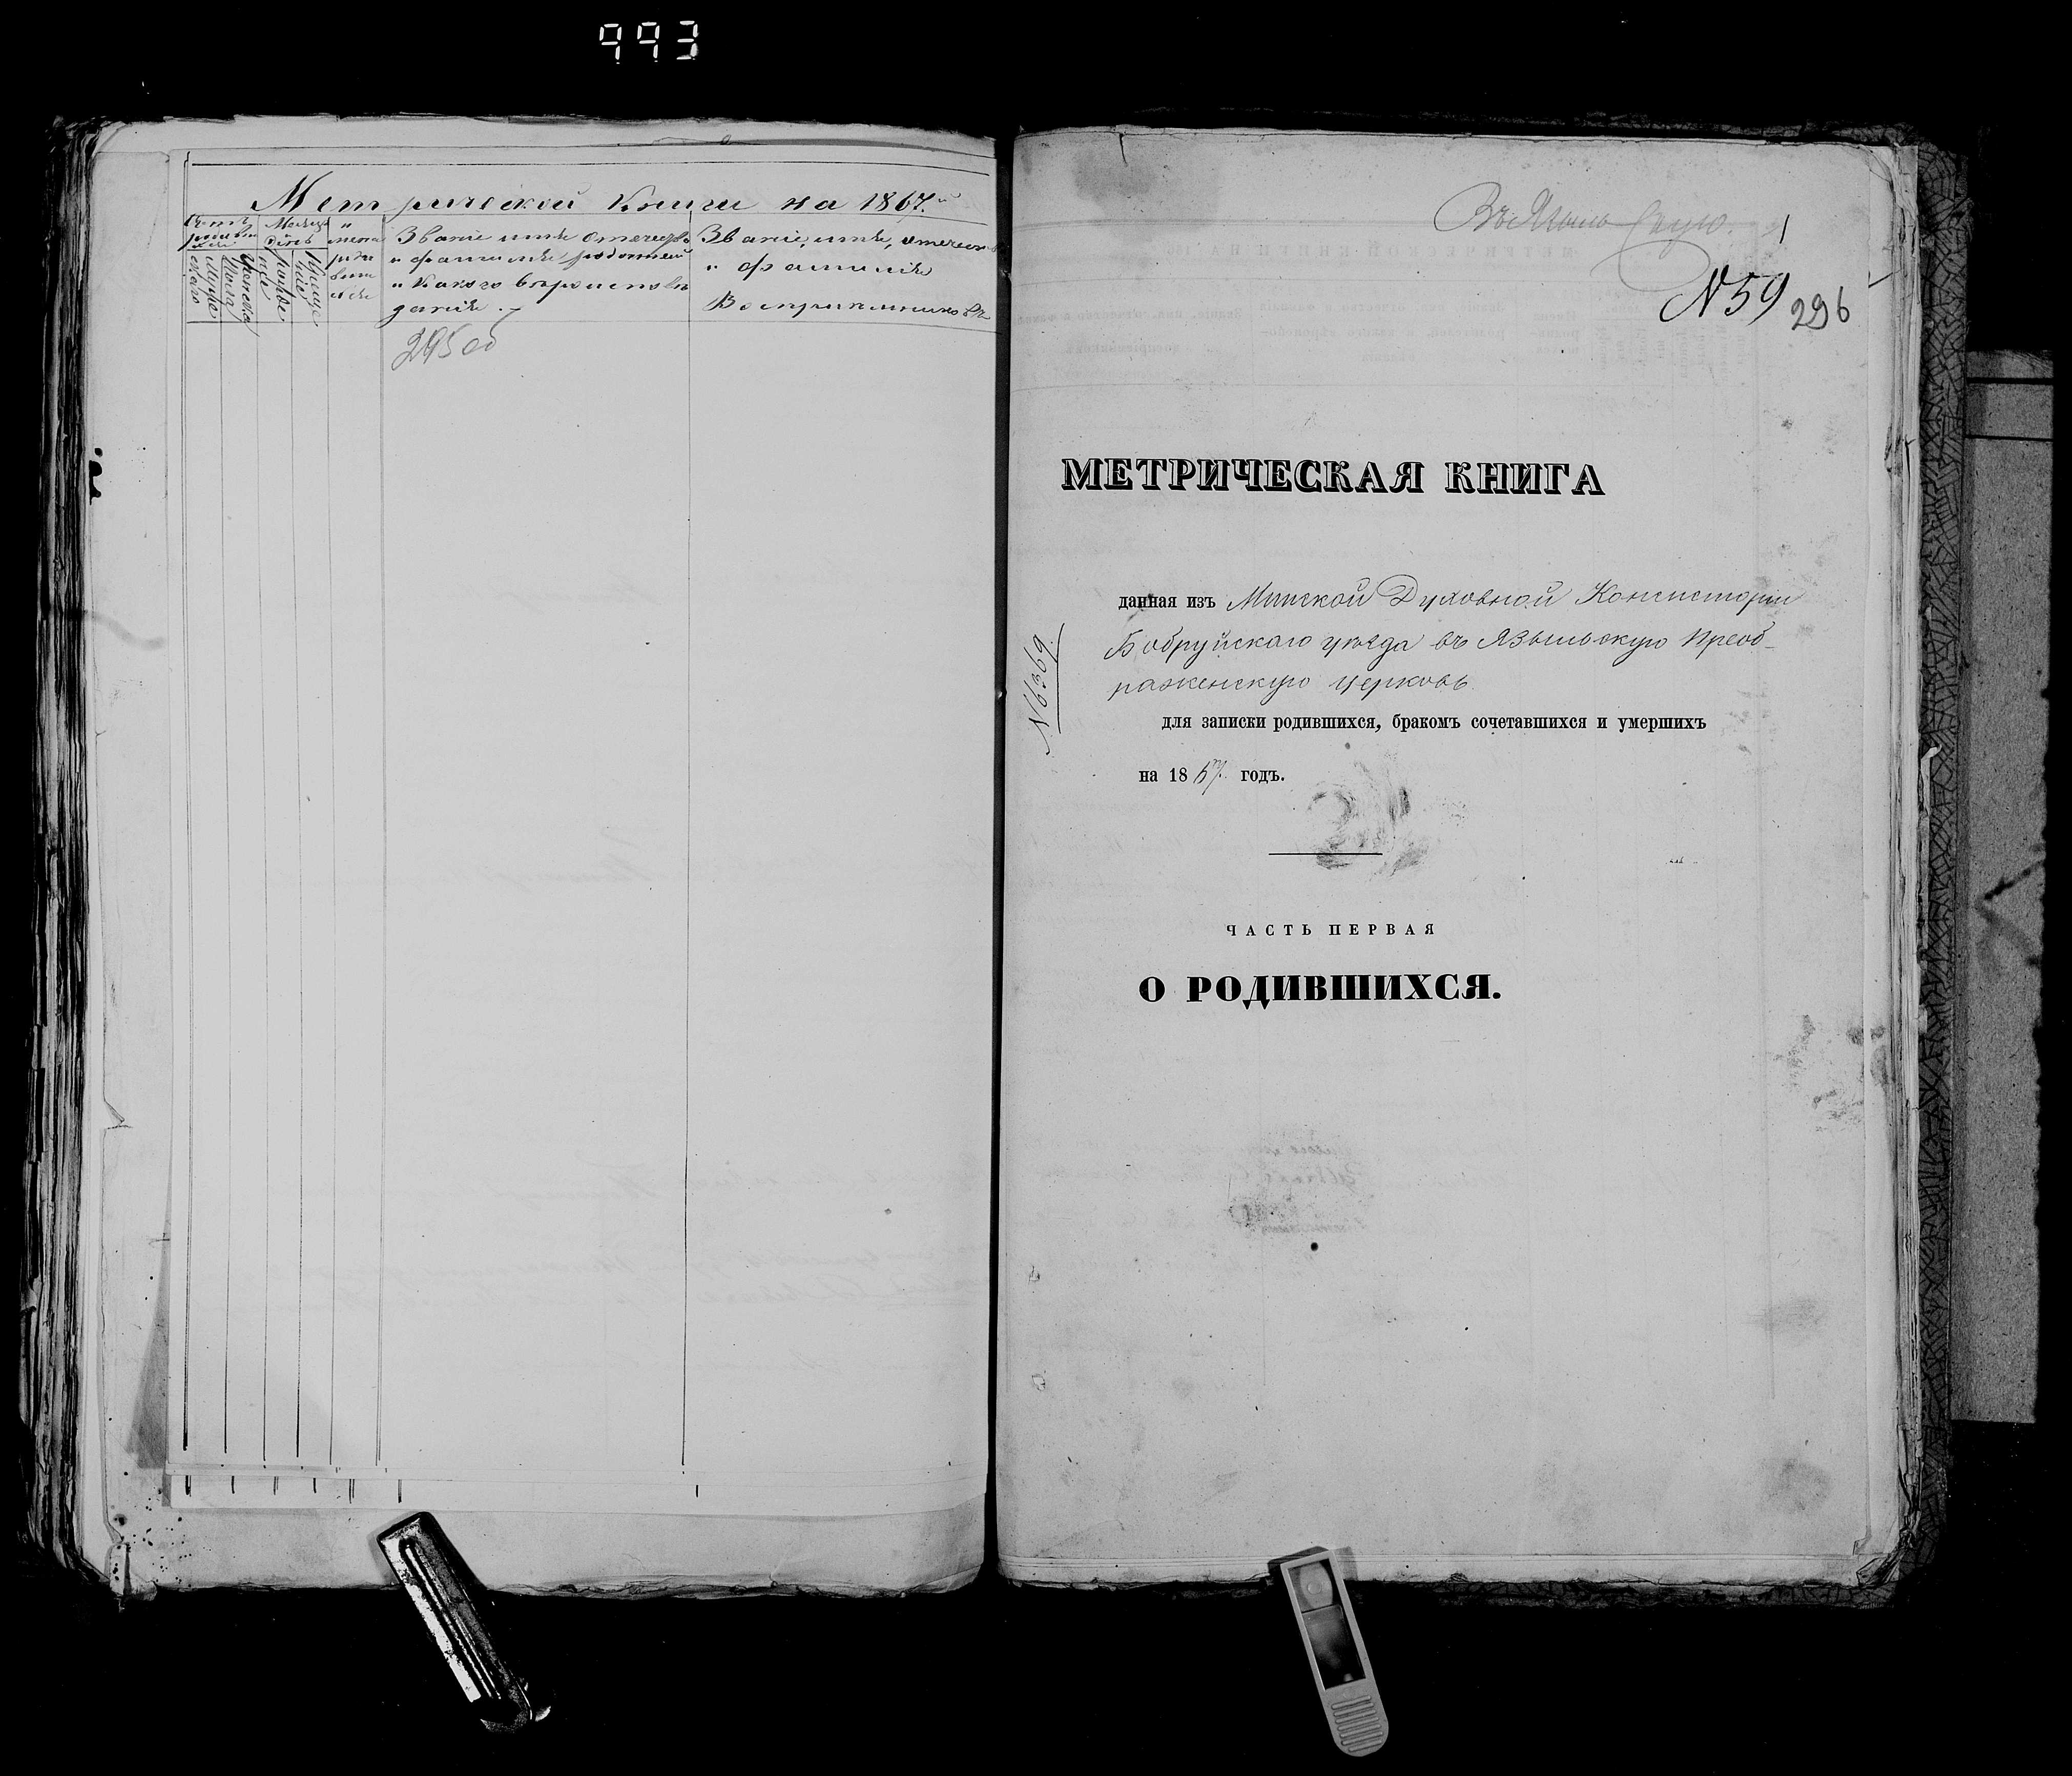 993
Метрической Книги на 1867й
Счетъ родившихся
Мужеска
Пола
Женска
Месяцъ день
рожде
нiе
Креще
нiе
имена
роди
вши
хся
Званiе имя отчество
и фамилiя родителей
и Какого вѣроиспове
данiя.
Званiе, имя, отчество
и фамилiя
Воспрiемниковъ
295 об
Въ Языльскую.
N 59
296
МЕТРИЧЕСКАЯ КНИГА
данная изъ Минской Духовной Консисторiи
Бобруйскаго уѣзда въ Языльскую Преоб-
раженскую церковь
N 6369
для записки родившихся, бракомъ сочетавшихся и умершихъ
на 1867 годъ.
ЧАСТЬ ПЕРВАЯ
О РОДИВШИХСЯ.